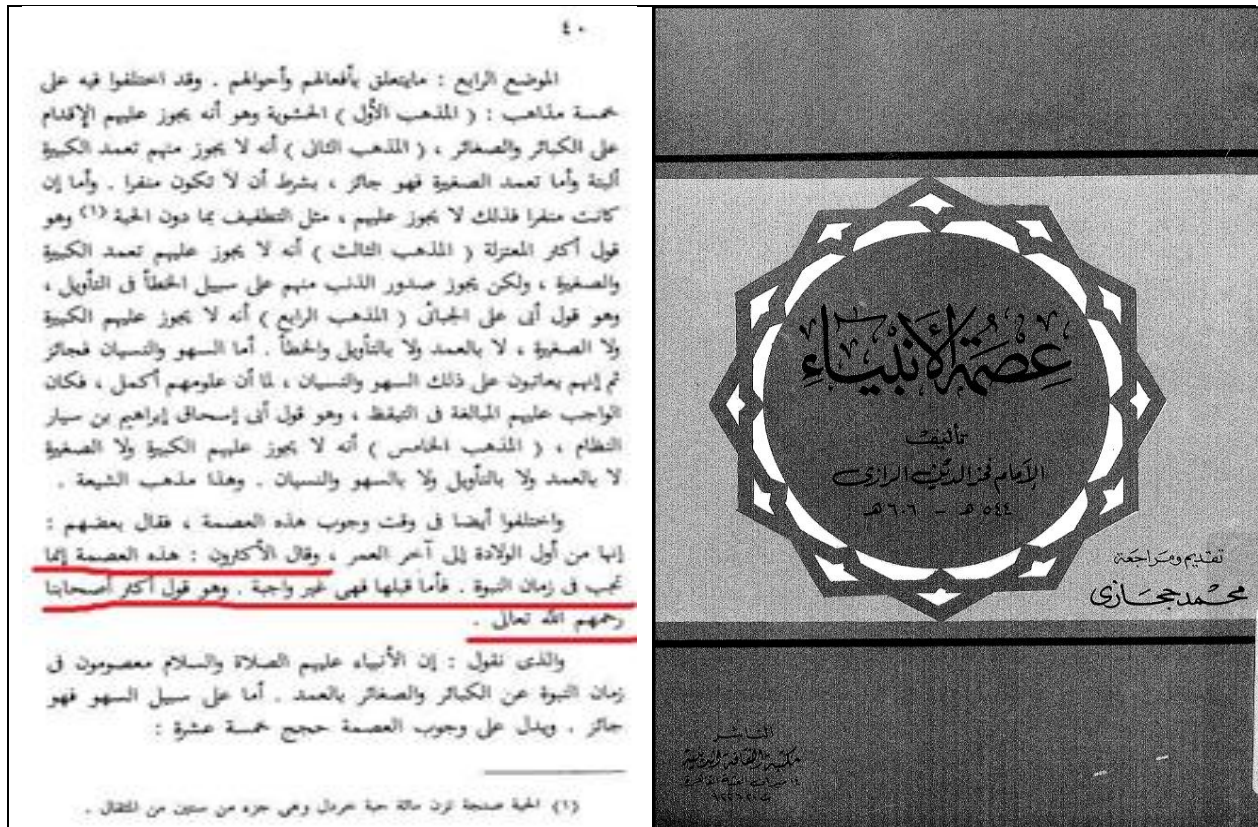 ٤٠
الموضع الرابع : مايتعلق بأفعالهم وأحوالهم . وقد اختلفوا فيه على
خمسة مذاهب : ( المذهب الأول ) الحشوية وهو أنه يجوز عليهم الإقدام
على الكبائر والصغائر ، ( المذهب الثانى ) أنه لا يجوز منهم تعمد الكبيرة
ألبتة وأما تعمد الصغيرة فهو جائز ، بشرط أن لا تكون منفرا . وأما إن
كانت منفرا فذلك لا يجوز عليهم ، مثل التطفيف بما دون الحبة (١) وهو
قول أكثر المعتزلة ( المذهب الثالث ) أنه لا يجوز عليهم تعمد الكبيرة
والصغيرة ، ولكن يجوز صدور الذنب منهم على سبيل الخطأ فى التأويل ،
وهو قول أبى على الجبائى ( المذهب الرابع ) أنه لا يجوز عليهم الكبيرة
ولا الصغيرة ، لا بالعمد ولا بالتأويل والخطأ . أما السهو والنسيان فجائز
ثم إنهم يعاتبون على ذلك السهو والنسيان ، لما أن علومهم أكمل ، فكان
الواجب عليهم المبالغة فى التيقظ ، وهو قول أبى إسحاق إبراهيم بن سيار
النظام ، ( المذهب الخامس ) أنه لا يجوز عليهم الكبيرة ولا الصغيرة
لا بالعمد ولا بالتأويل ولا بالسهو والنسيان . وهذا مذهب الشيعة .
واختلفوا أيضا فى وقت وجوب هذه العصمة ، فقال بعضهم :
إنها من أول الولادة إلى آخر العمر ، وقال الأكثرون : هذه العصمة إنما
تجب فى زمان النبوة . فأما قبلها فهى غير واجبة . وهو قول أكثر أصحابنا
رحمهم الله تعالى .
والذى نقول : إن الأنبياء عليهم الصلاة والسلام معصومون فى
زمان النبوة عن الكبائر والصغائر بالعمد . أما على سبيل السهو فهو
جائز . ويدل على وجوب العصمة حجج خمسة عشرة :
(١) الحبة صنجة تزن مائة حبة خردل وهى جزء من ستين من المثقال .
عصمة الأنبياء
تأليف
الإمام فخر الدين الرازى
٥٤٤ هـ - ٦٠٦ هـ
تقديم ومراجعة
محمد حجازى
الناشر
مكتبة الثقافة الدينية